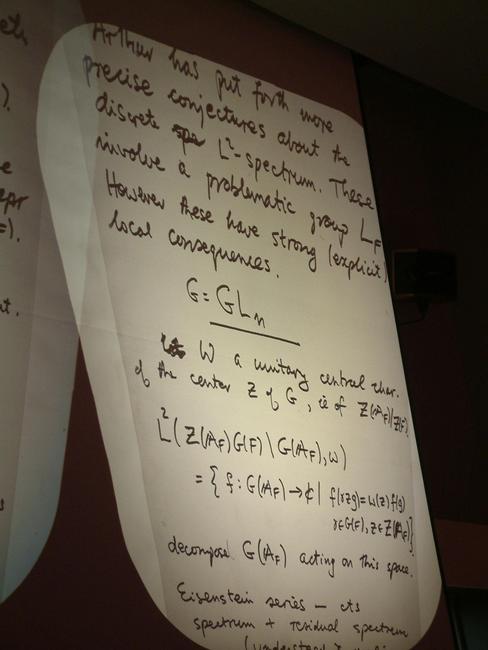 Arthur has put forth more
precise conjectures about the
discrete L²-spectrum. These
involve a problematic group L_F
However these have strong (explicit)
local consequences.
G = GL_n
ω a unitary central char.
of the center Z of G, ie of Z(A_F)/Z(F).
L²(Z(A_F)G(F)\G(A_F), ω)
= { f: G(A_F) → ℂ | f(γzg) = ω(z)f(g)
γ∈G(F), z∈Z(A_F)}
decompose G(A_F) acting on this space.
Eisenstein series — cts
spectrum + residual spectrum
(understood